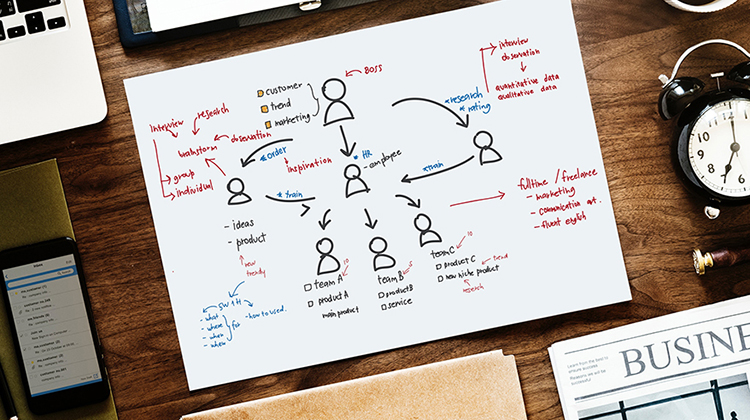 BOSS
customer
trend
marketing
interview
observation
quantitative data
qualitative data
*research
*rating
Interview
research
brainstorm
observation
group
individual
*order
inspiration
* HR
- employee
*train
*train
- ideas
- product
new
trendy
fulltime / freelance
- marketing
- communication
team A
10
product A
main product
team B
5
product B
service
team C
10
product C
trend
new niche product
research
5W1H
- what
- where
- when
- how to used.
12
6
BUSINE
Learn from the best to
ensure success